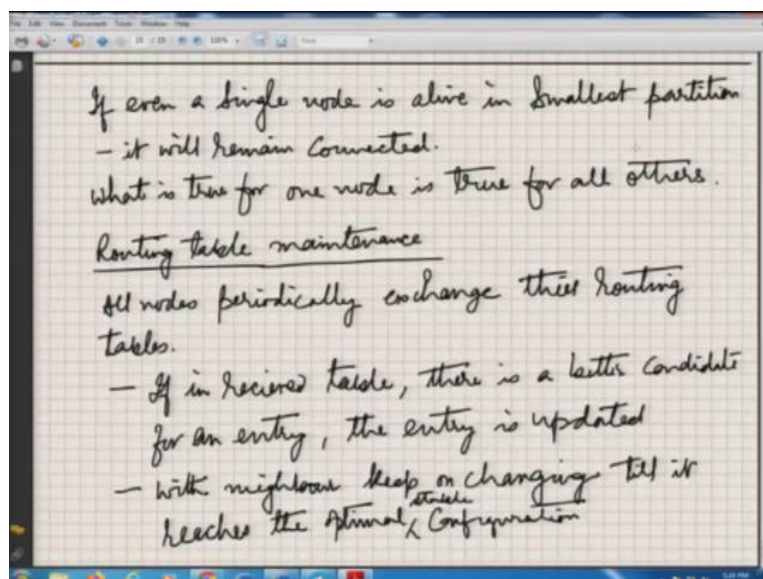 If even a single node is alive in smallest partition
– it will remain connected.
What is true for one node is true for all others.
Routing table maintenance
All nodes periodically exchange their routing
tables.
– If in recieved table, there is a better candidate
for an entry, the entry is updated
– with neighbour keep on changing till it
reaches the optimal stable configuration